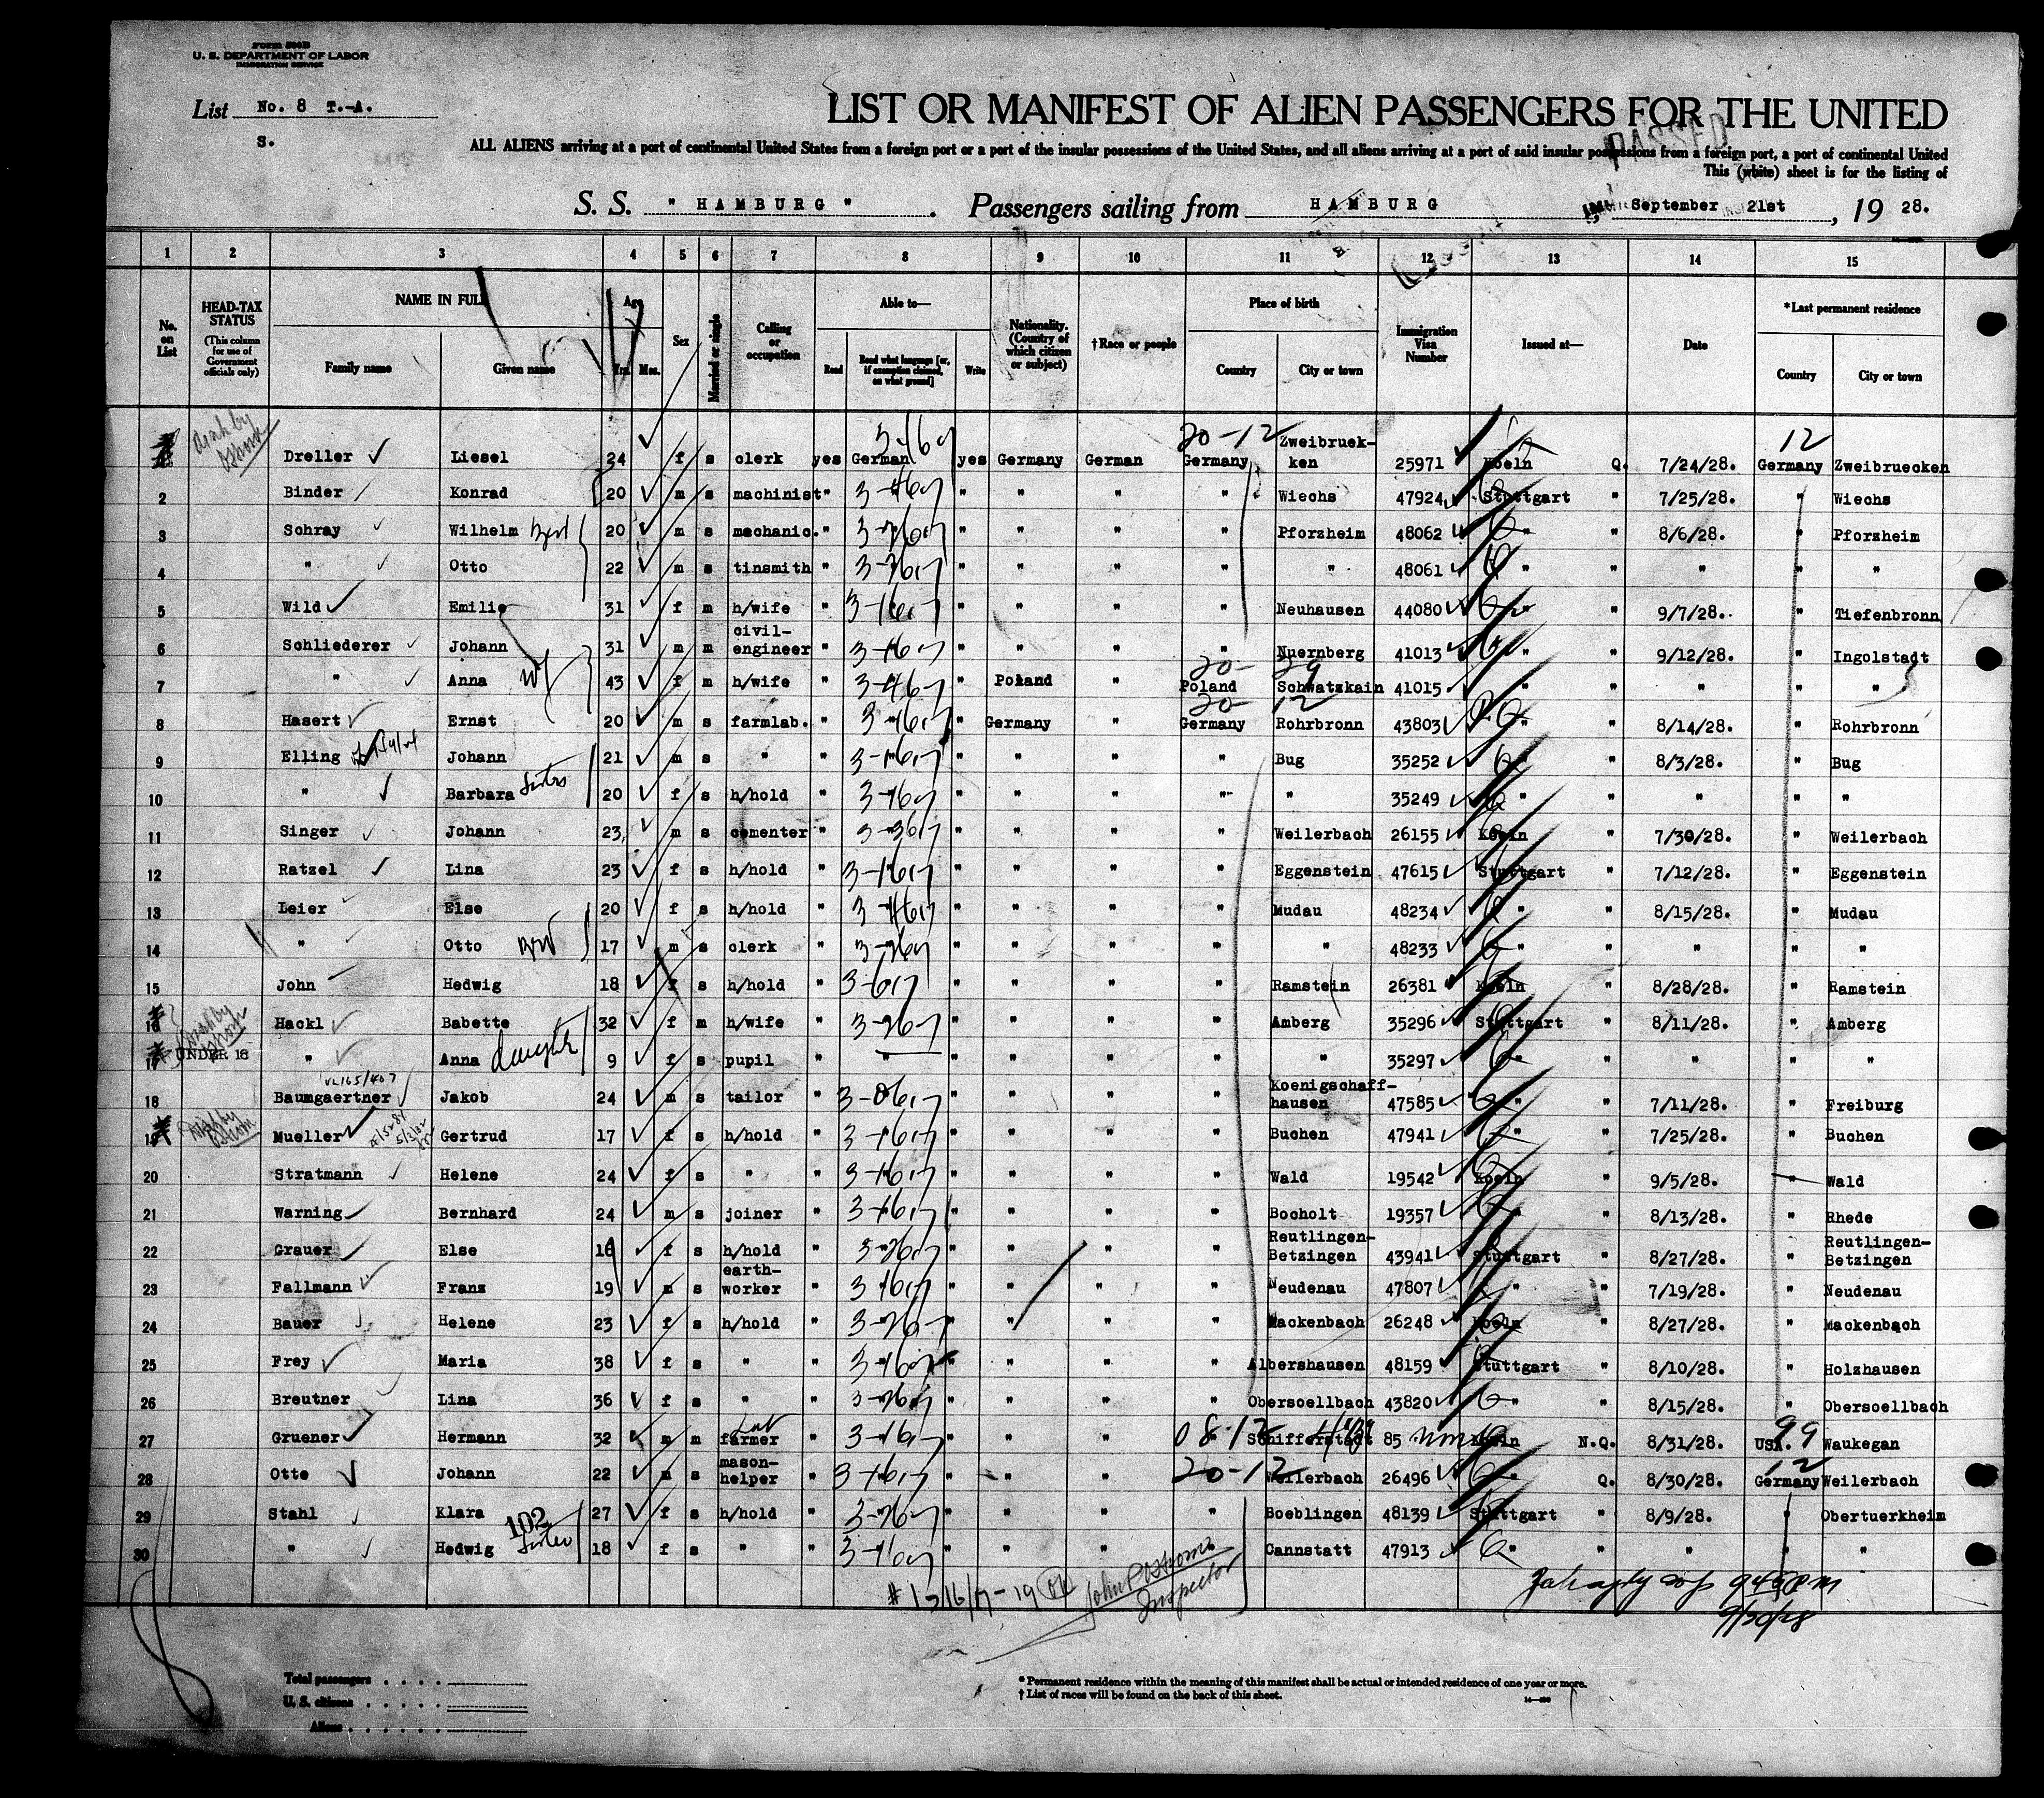 Form 500B
U. S. DEPARTMENT OF LABOR
IMMIGRATION SERVICE
List No. 8 T.-A.
S.
LIST OR MANIFEST OF ALIEN PASSENGERS FOR THE UNITED
PASSED
ALL ALIENS arriving at a port of continental United States from a foreign port or a port of the insular possessions of the United States, and all aliens arriving at a port of said insular possessions from a foreign port, a port of continental United
This (white) sheet is for the listing of
S. S. " HAMBURG " . Passengers sailing from HAMBURG , September 21st , 19 28.
1 2 3 4 5 6 7 8 9 10 11 12 13 14 15
No. on List
HEAD-TAX STATUS (This column for use of Government officials only)
NAME IN FULL
Family name Given name
Age
Yrs. Mos.
Sex
Married or single
Calling or occupation
Able to—
Read Read what language [or, if exemption claimed, on what ground] Write
Nationality. (Country of which citizen or subject)
†Race or people
Place of birth
Country City or town
Immigration Visa Number
Issued at—
Date
*Last permanent residence
Country City or town
Dreller Liesel 24 f s clerk yes German yes Germany German Germany Zweibruek-ken 25971 Koeln Q. 7/24/28. Germany Zweibruecken
2 Binder Konrad 20 m s machinist " " " " " Wiechs 47924 Stuttgart " 7/25/28. " Wiechs
3 Schray Wilhelm 20 m s mechanic. " " " " " Pforzheim 48062 " " 8/6/28. " Pforzheim
4 " Otto 22 m s tinsmith " " " " " " 48061 " " " " "
5 Wild Emilie 31 f m h/wife " " " " " Neuhausen 44080 " " 9/7/28. " Tiefenbronn
6 Schliederer Johann 31 m m civil-engineer " " " " " Nuernberg 41013 " " 9/12/28. " Ingolstadt
7 " Anna 43 f m h/wife " " Poland " Poland Schwatzkain 41015 " " " " "
8 Hasert Ernst 20 m s farmlab. " " Germany " Germany Rohrbronn 43803 " " 8/14/28. " Rohrbronn
9 Elling Johann 21 m s " " " " " " Bug 35252 " " 8/3/28. " Bug
10 " Barbara sister 20 f s h/hold " " " " " " 35249 " " " " "
11 Singer Johann 23 m s cementer " " " " " Weilerbach 26155 Koeln " 7/30/28. " Weilerbach
12 Ratzel Lina 23 f s h/hold " " " " " Eggenstein 47615 Stuttgart " 7/12/28. " Eggenstein
13 Leier Else 20 f s h/hold " " " " " Mudau 48234 " " 8/15/28. " Mudau
14 " Otto 17 m s clerk " " " " " " 48233 " " " " "
15 John Hedwig 18 f s h/hold " " " " " Ramstein 26381 Koeln " 8/28/28. " Ramstein
16 Hackl Babette 32 f m h/wife " " " " " Amberg 35296 Stuttgart " 8/11/28. " Amberg
17 UNDER 16 " Anna daughter 9 f s pupil " " " " " " " 35297 " " " " "
18 Baumgaertner Jakob 24 m s tailor " " " " " Koenigschaff-hausen 47585 " " 7/11/28. " Freiburg
19 Mueller Gertrud 17 f s h/hold " " " " " Buchen 47941 " " 7/25/28. " Buchen
20 Stratmann Helene 24 f s " " " " " " Wald 19542 Koeln " 9/5/28. " Wald
21 Warning Bernhard 24 m s joiner " " " " " Bocholt 19357 " " 8/13/28. " Rhede
22 Grauer Else 18 f s h/hold " " " " " Reutlingen-Betzingen 43941 Stuttgart " 8/27/28. " Reutlingen-Betzingen
23 Fallmann Franz 19 m s earth-worker " " " " " Neudenau 47807 " " 7/19/28. " Neudenau
24 Bauer Helene 23 f s h/hold " " " " " Mackenbach 26248 Koeln " 8/27/28. " Mackenbach
25 Frey Maria 38 f s " " " " " " Albershausen 48159 Stuttgart " 8/10/28. " Holzhausen
26 Breutner Lina 36 f s " " " " " " Obersoellbach 43820 " " 8/15/28. " Obersoellbach
27 Gruener Hermann 32 m m farmer " " " " Schifferstadt 85 Koeln N.Q. 8/31/28. USA. Waukegan
28 Otte Johann 22 m s mason-helper " " " " Weilerbach 26496 " Q. 8/30/28. Germany Weilerbach
29 Stahl Klara 27 f s h/hold " " " " " Boeblingen 48139 Stuttgart " 8/9/28. " Obertuerkheim
30 " Hedwig sister 18 f s " " " " " " Cannstatt 47913 " " " " "
102
John P. Ostrom
Inspector
9/30/28
Total passengers
U. S. citizens
Aliens
* Permanent residence within the meaning of this manifest shall be actual or intended residence of one year or more.
† List of races will be found on the back of this sheet.